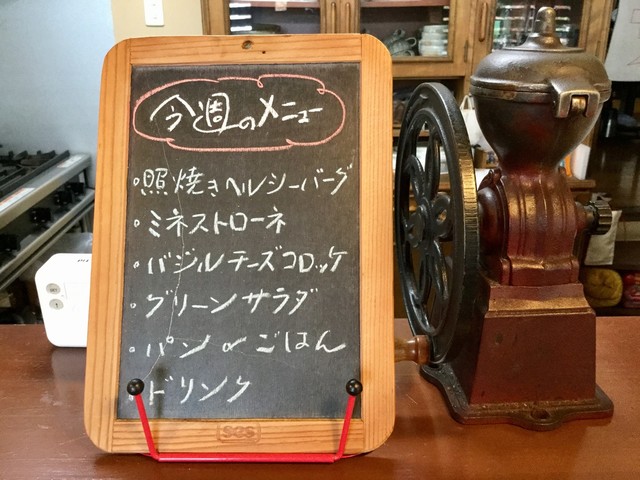 今週のメニュー
・照焼きヘルシーバーグ
・ミネストローネ
・バジルチーズコロッケ
・グリーンサラダ
・パン or ごはん
・ドリンク
SGS